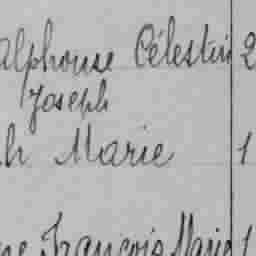 alphonse Célestin 2
Joseph
h Marie 1
ne François Marie 1